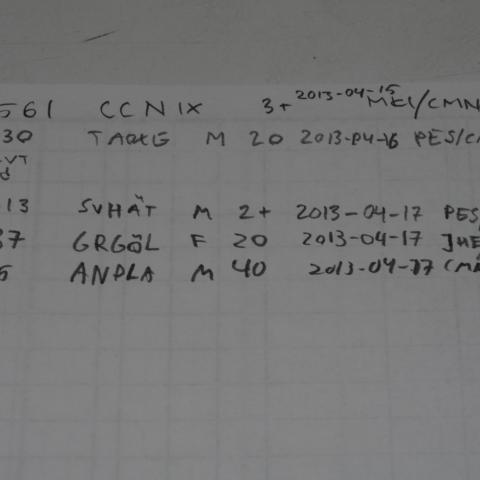 561 CCNIX 3+ 2013-04-15 MEI/CMN
30 TAOXG M 20 2013-04-16 PES/C
VT
13 SVHÄT M 2+ 2013-04-17 PES
37 GRGÖL F 20 2013-04-17 JHE
5 ANPLA M 40 2013-04-17 CMN